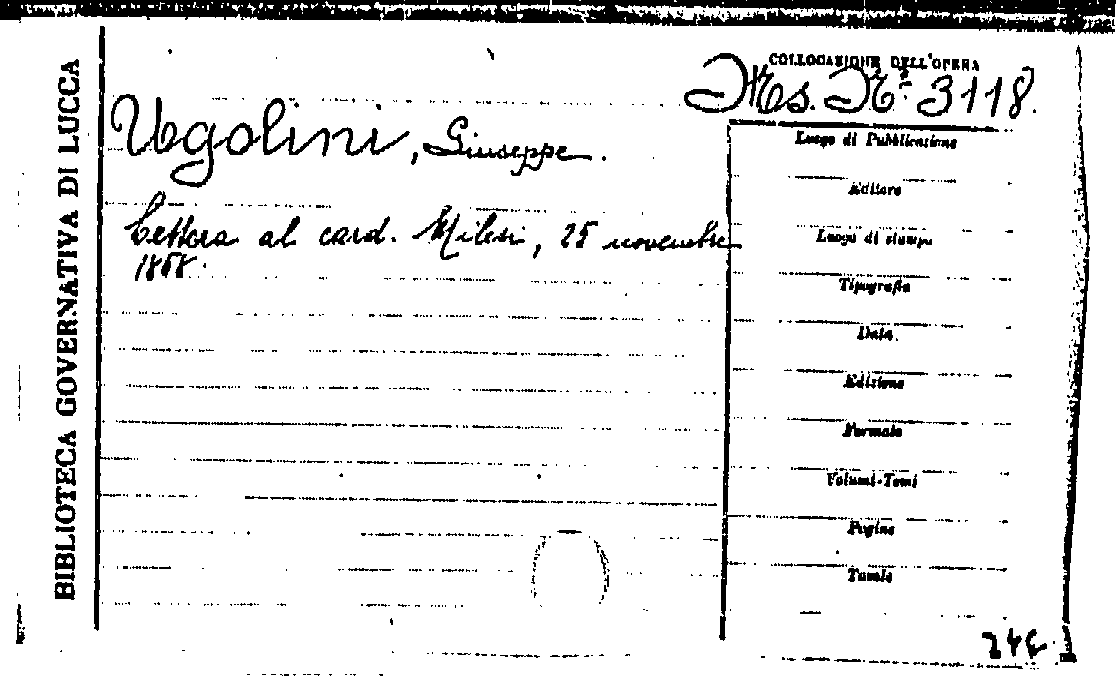 BIBLIOTECA GOVERNATIVA DI LUCCA
COLLOCAZIONE DELL'OPERA
Ms. N° 3118.
Ugolini, Giuseppe.
Lettera al card. Milesi, 25 novembre
1868.
Luogo di Pubblicazione
Editore
Luogo di stampa
Tipografia
Data
Edizione
Formato
Volumi-Tomi
Pagine
Tavole